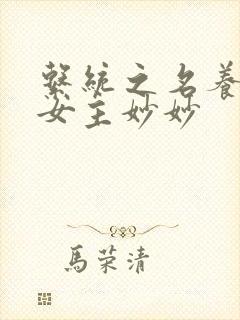 繫統之名養
女主妙妙
馬荣清